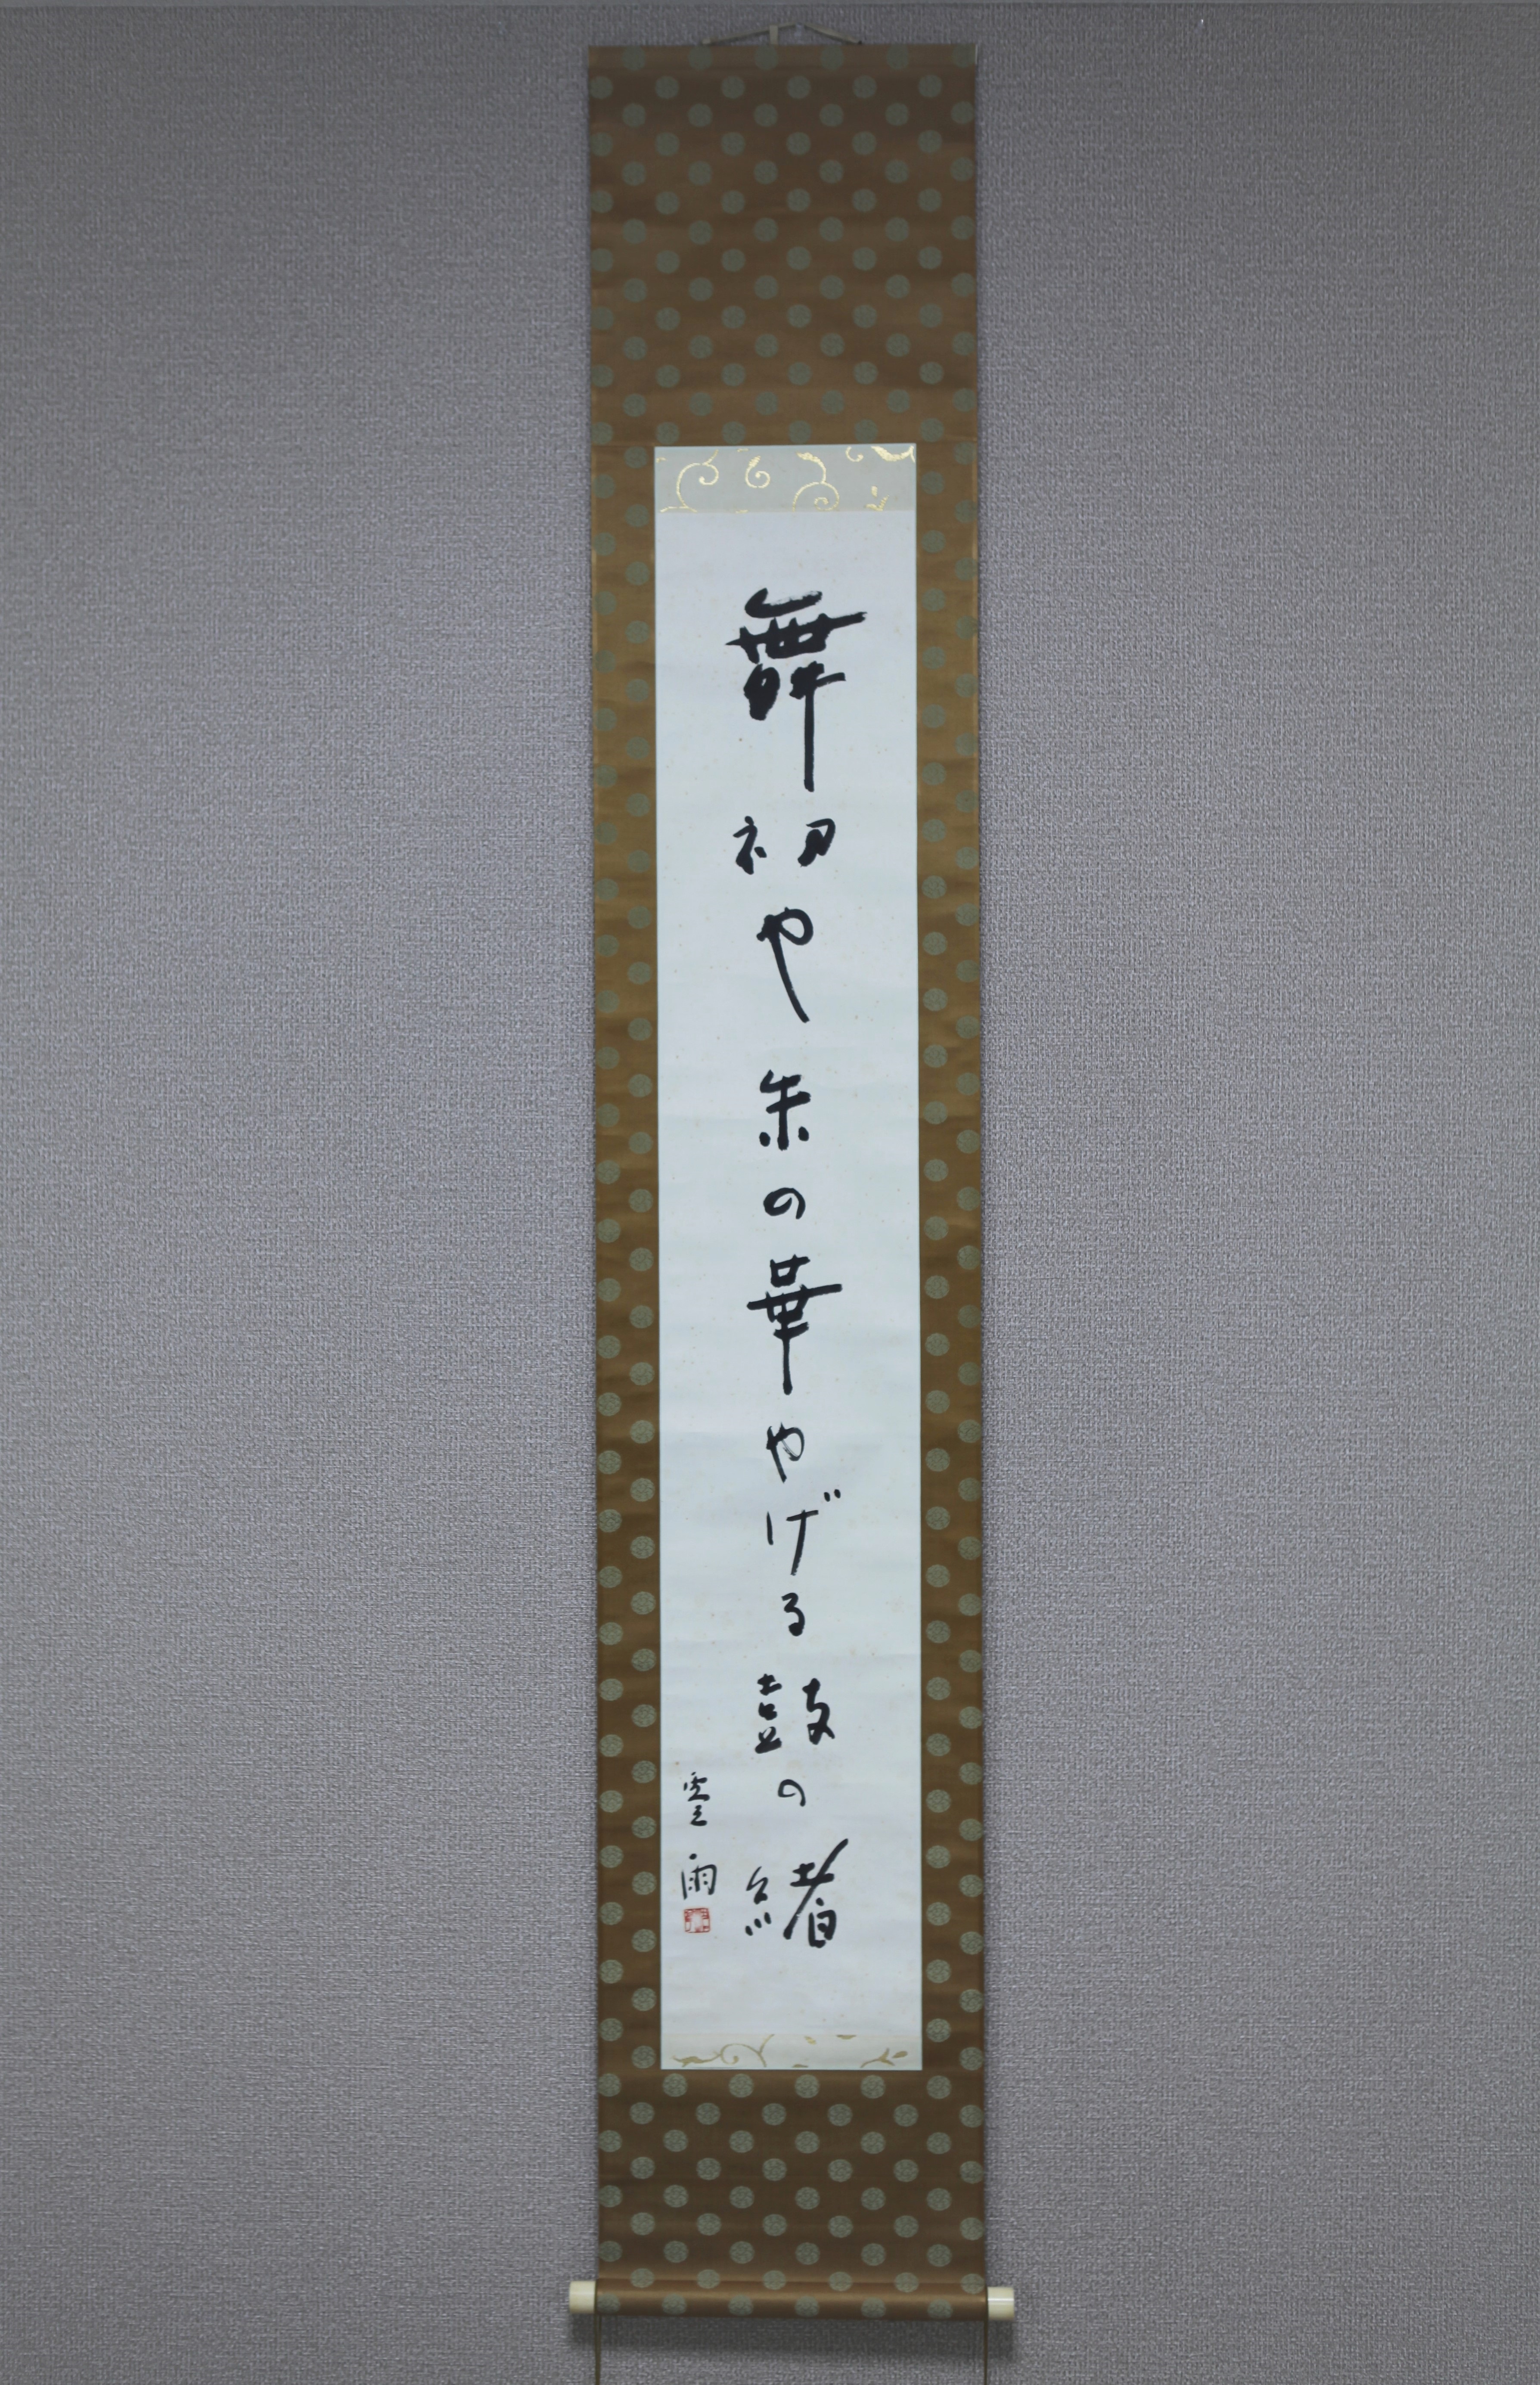 舞初や朱の華やげる鼓の緒
雲雨